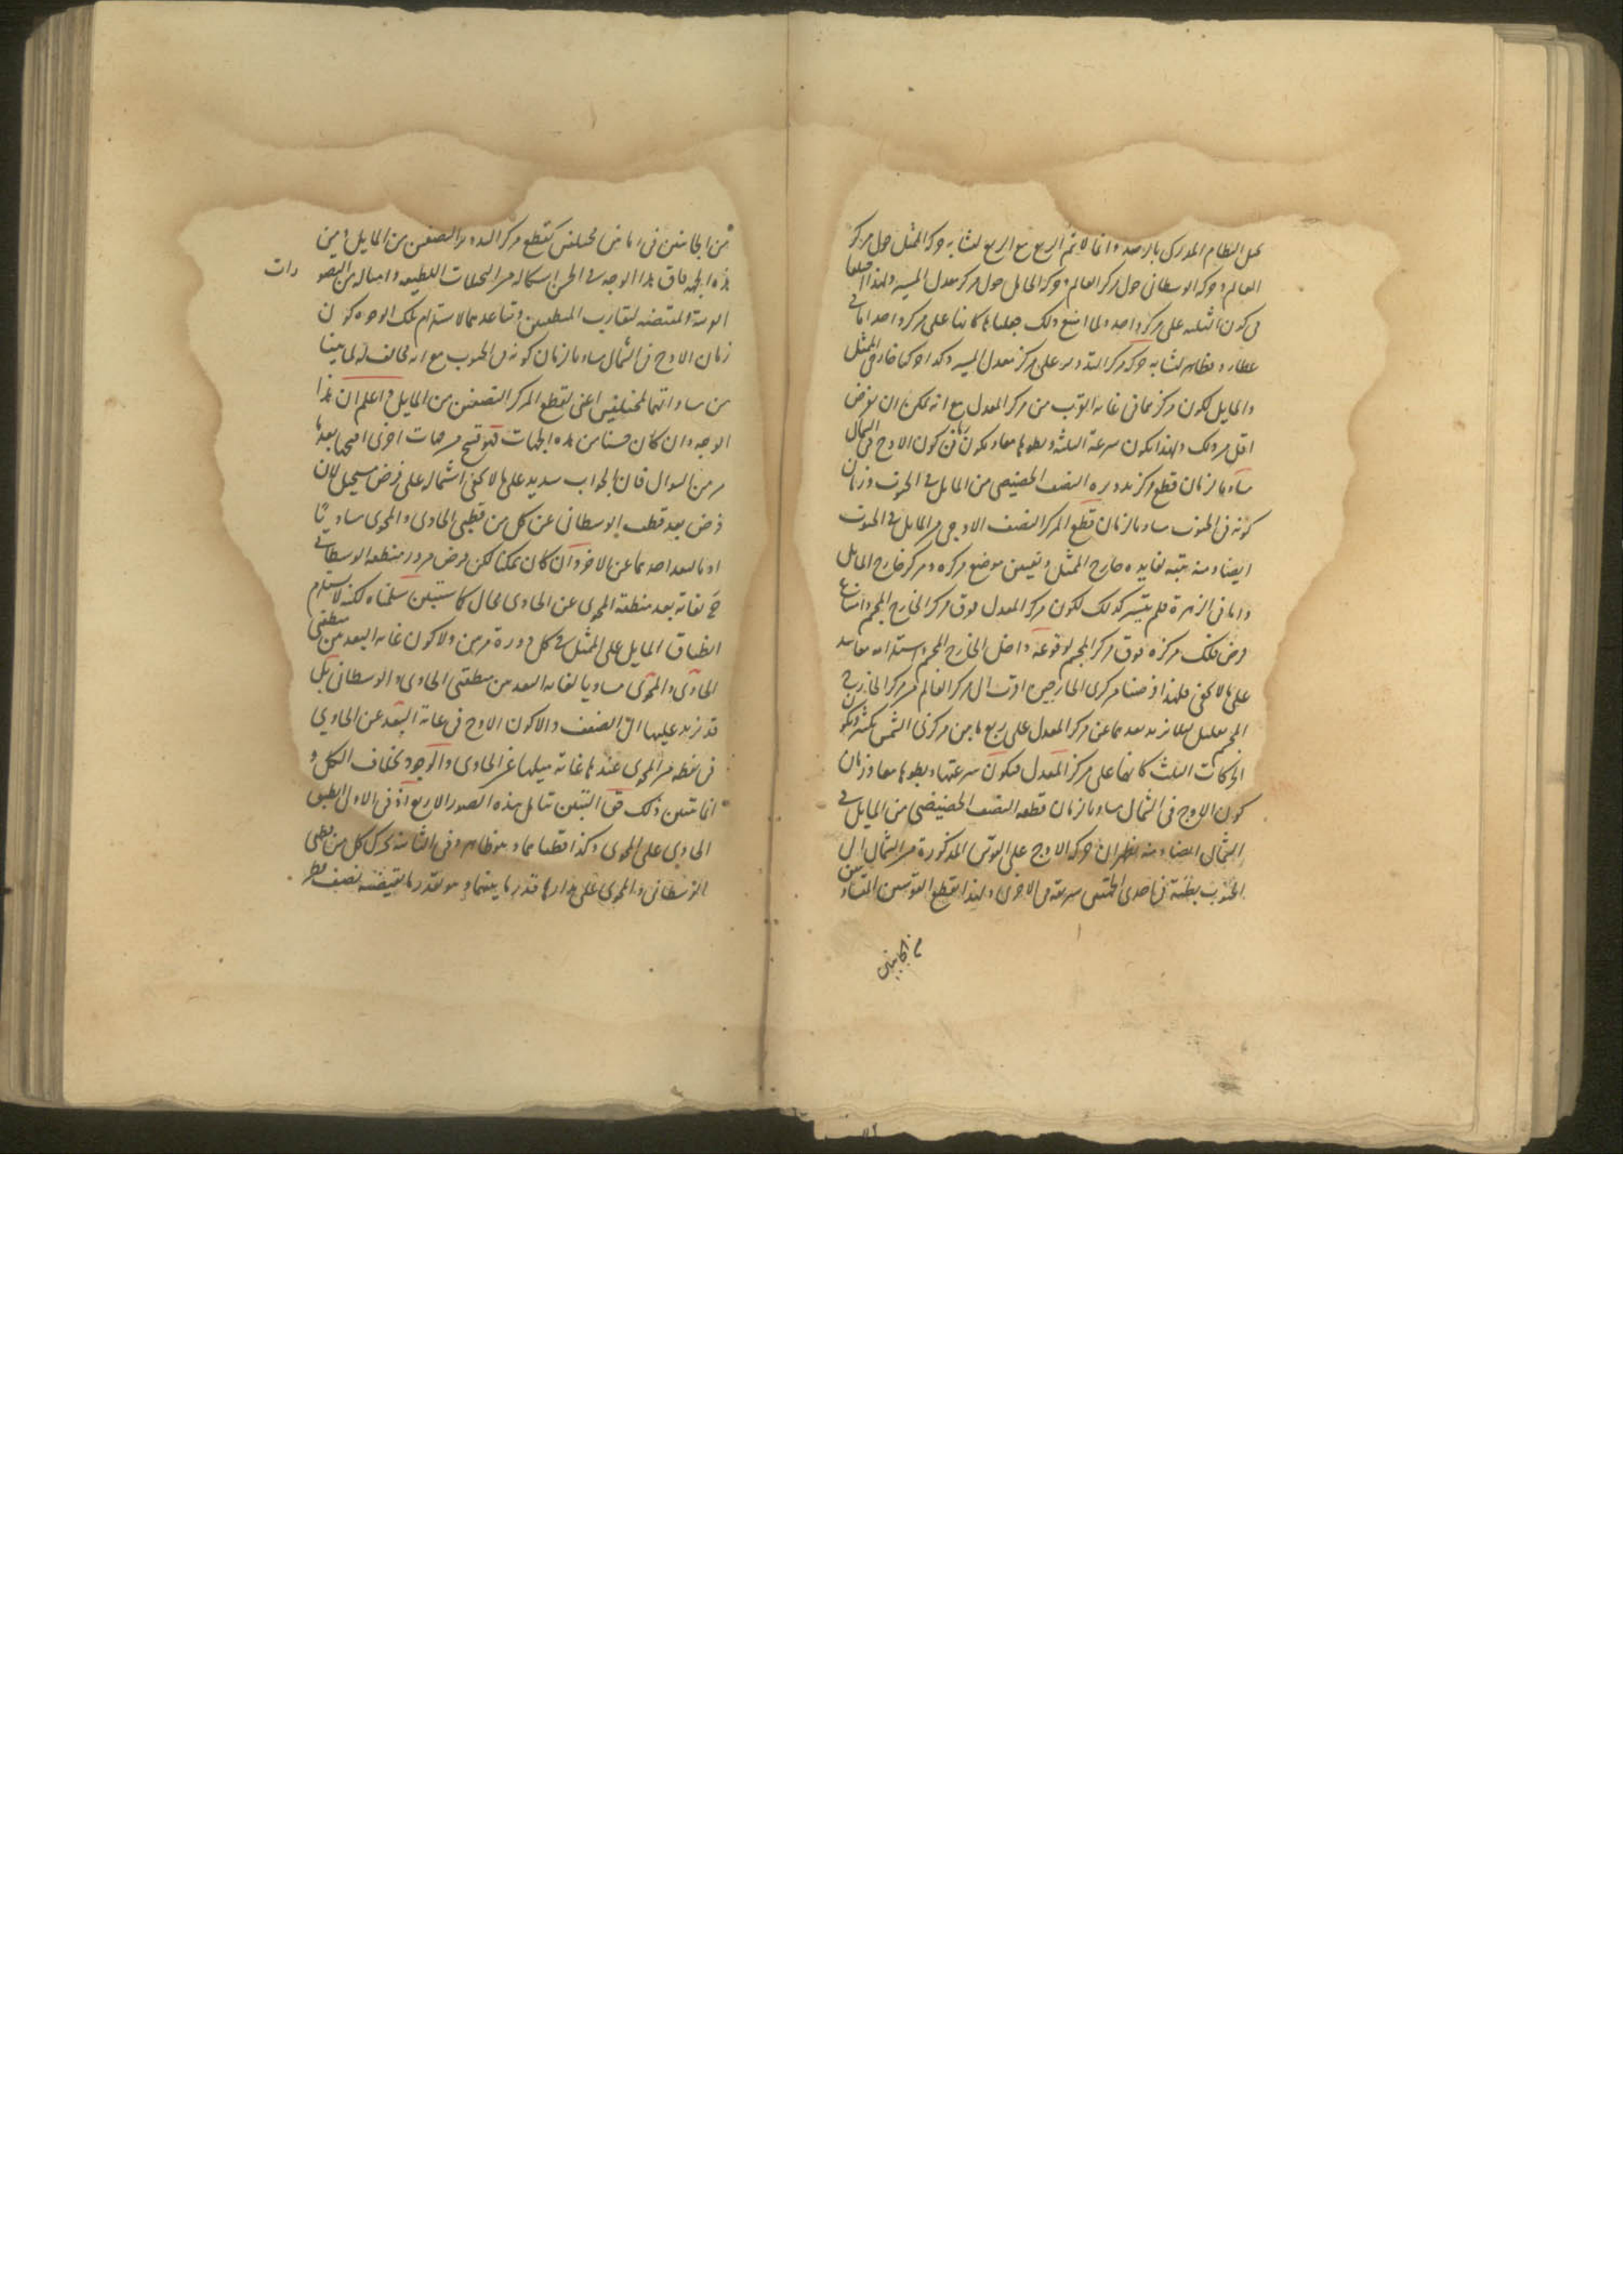 على النظام المدرك بالرصد وانما لا تم الربع مع الربع لتشابه حركة الممثل حول مركز
العالم وحركة الوسطانى حول مركز العالم وحركة المايل حول مركز معدل المسير ولهذا
فى كون الثلثة على مركز واحد ولما امتنع ذلك جعلناها كانها على مركز واحد اما فى
عطارد فظاهر لتشابه حركة مركز التدوير على مركز معدل المسير وكذا حركتا خارجى الممثل
والمايل لكون مركزيهما فى غاية القرب من مركز المعدل مع انه يمكن ان يفرض
اقل من ذلك ولهذا يكون سرعة الثلثة وبطوها معا ويكون زمان كون الاوج فى الشمال
مساويا لزمان قطع مركز تدويره النصف الحضيضى من المايل فى الجنوب وزمان
كونه فى الجنوب مساويا لزمان قطع المركز النصف الاوجى من المايل فى الجنوب
ايضا ومنه يتبه لفايدة خارج الممثل وتعيين موضع مركزه ومركز خارج المايل
واما فى الزهرة فلم يتيسر كذلك لكون مركز المعدل فوق مركز الخارج المجم وامتناع
فرض فلك مركزه فوق مركز المجم لوقوعه داخل الخارج المجم واستلزامه مفاسد
على ما لا يخفى فلهذا فرضنا مركزى الخارجين اقرب الى مركز العالم من مركز الخارج
المجم بقليل لئلا يزيد بعدهما عن مركز المعدل على ربع ما بين مركزى الشمس بكثير ويكون
الحركات الثلث كانها على مركز المعدل فيكون سرعتها وبطوها معا وزمان
كون الاوج فى الشمال مساويا لزمان قطعه النصف الحضيضى من المايل فى
الشمال ايضا ومنه يظهر ان حركة الاوج على القوس المذكورة من الشمال الى
الجنوب بطيئة فى احدى الجهتين سريعة فى الاخرى ولهذا يقطع القوسين المتساويتين
من الجانبين
من الجانبين فى زمانين مختلفين كقطع مركز التدوير النصفين من المايل ومن
هذه الجهة فاق هذا الوجه فى الحسن اشكاله من التخيلات اللطيفة وامثاله من التصورات
الموسة المقتضية لتقارب المنطقتين وتباعدهما لاستلزام تلك الوجوه كون
زمان الاوج فى الشمال مساويا لزمان كونه فى الجنوب مع انه مخالف لما بينا
من مساواتهما لمختلفين اعنى لقطع المركز النصفين من المايل واعلم ان هذا
الوجه وان كان حسنا من هذه الجهات فهو قبيح من جهات اخرى اقبحها بعد ها
من السوال فان الجواب سديد على ما لا يخفى اشتماله على فرض مستحيل لان
فرض بعد قطب الوسطانى عن كل من قطبى الحاوى والمحوى مساويا
او مالبعد احدهما عن الاخر وان كان ممكنا لكن فرض مرور منطقة الوسطانى
بغاية بعد منطقة المحوى عن الحاوى محال كما ستبين سلمناه لكنه لا يستلزم
انطباق المايل على الممثل فى كل دورة مرتين ولا كون غاية البعد بين منطقتى
الحاوى والمحوى مساويا لغاية البعد بين منطقتى الحاوى والوسطانى بل
قد يزيد عليها الى الضعف والا كون الاوج فى غاية البعد عن الحاوى
فى نقطة من المحوى عندها غاية ميلها عن الحاوى والوجود بخلاف الكل و
انما يتبين ذلك حق التبين بتامل هذه الصور الاربع اذ فى الاول انطبق
الحاوى على المحوى وكذا قطباهما وهو ظاهر وفى الثانية تحرك كل من قطبى
الوسطانى والمحوى على مدارها قدر ما بينهما وهو بقدر ما يقتضيه نصف